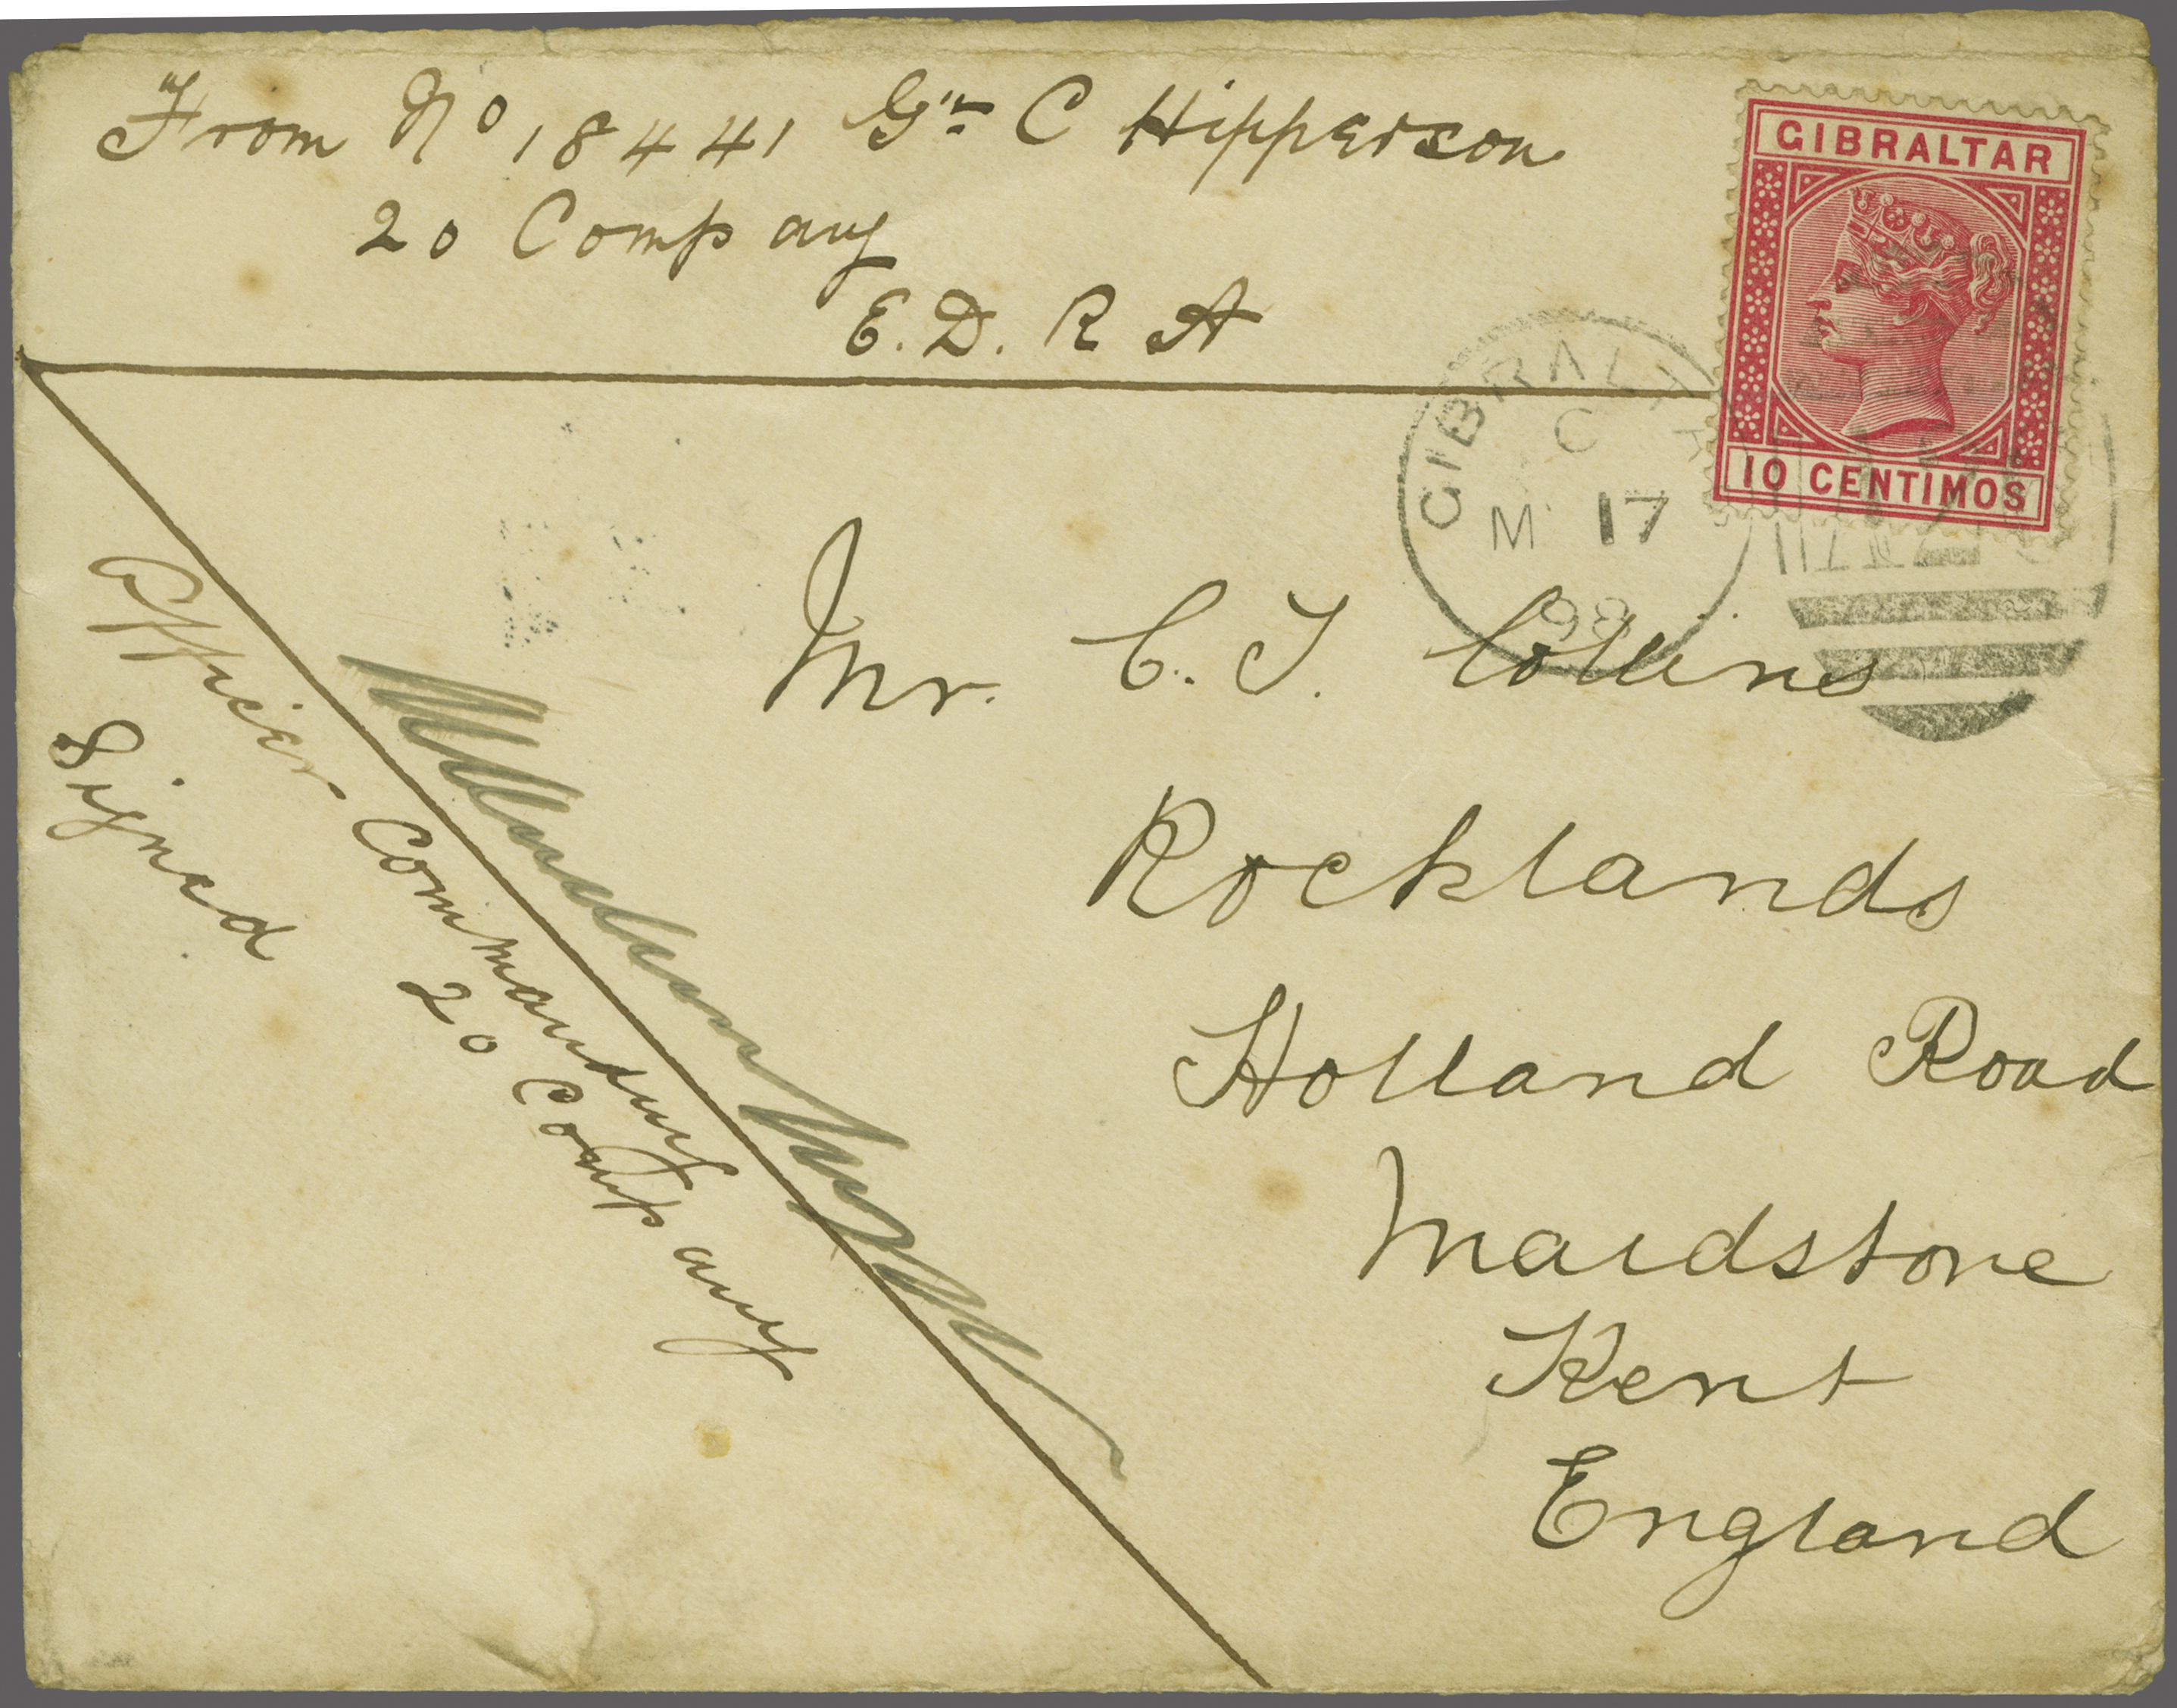 From No 18441 Gnr C Hipperson
20 Company
E. D. R A
GIBRALTAR
10 CENTIMOS
GIBRALTA
C
M 17
98
Mr. C. T. Collins
Rocklands
Holland Road
Maidstone
Kent
England
Signed
Officer Commanding
20 Company